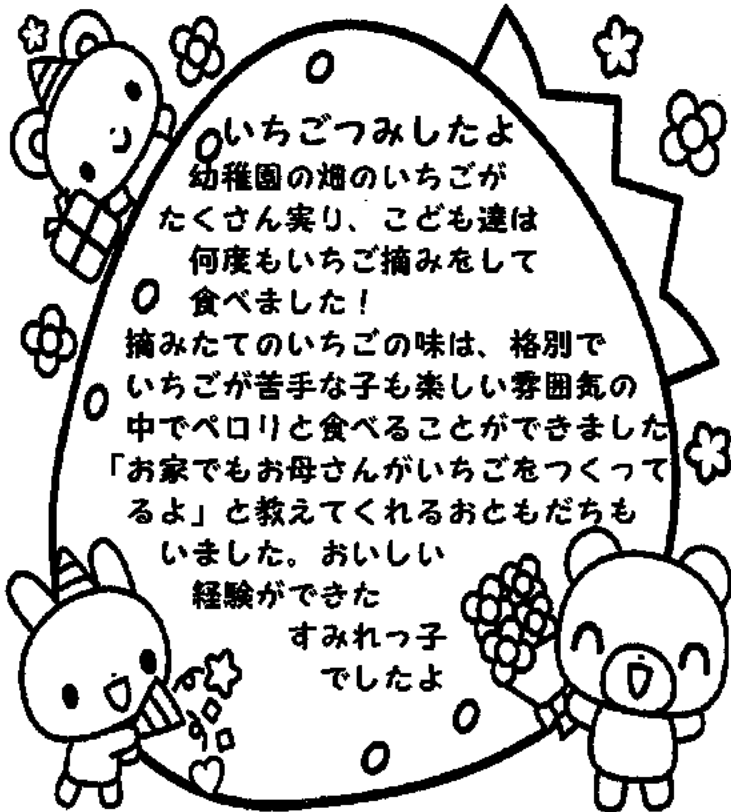 いちごつみしたよ
幼稚園の畑のいちごが
たくさん実り、こども達は
何度もいちご摘みをして
食べました!
摘みたてのいちごの味は、格別で
いちごが苦手な子も楽しい雰囲気の
中でペロリと食べることができました
「お家でもお母さんがいちごをつくって
るよ」と教えてくれるおともだちも
いました。おいしい
経験ができた
すみれっ子
でしたよ